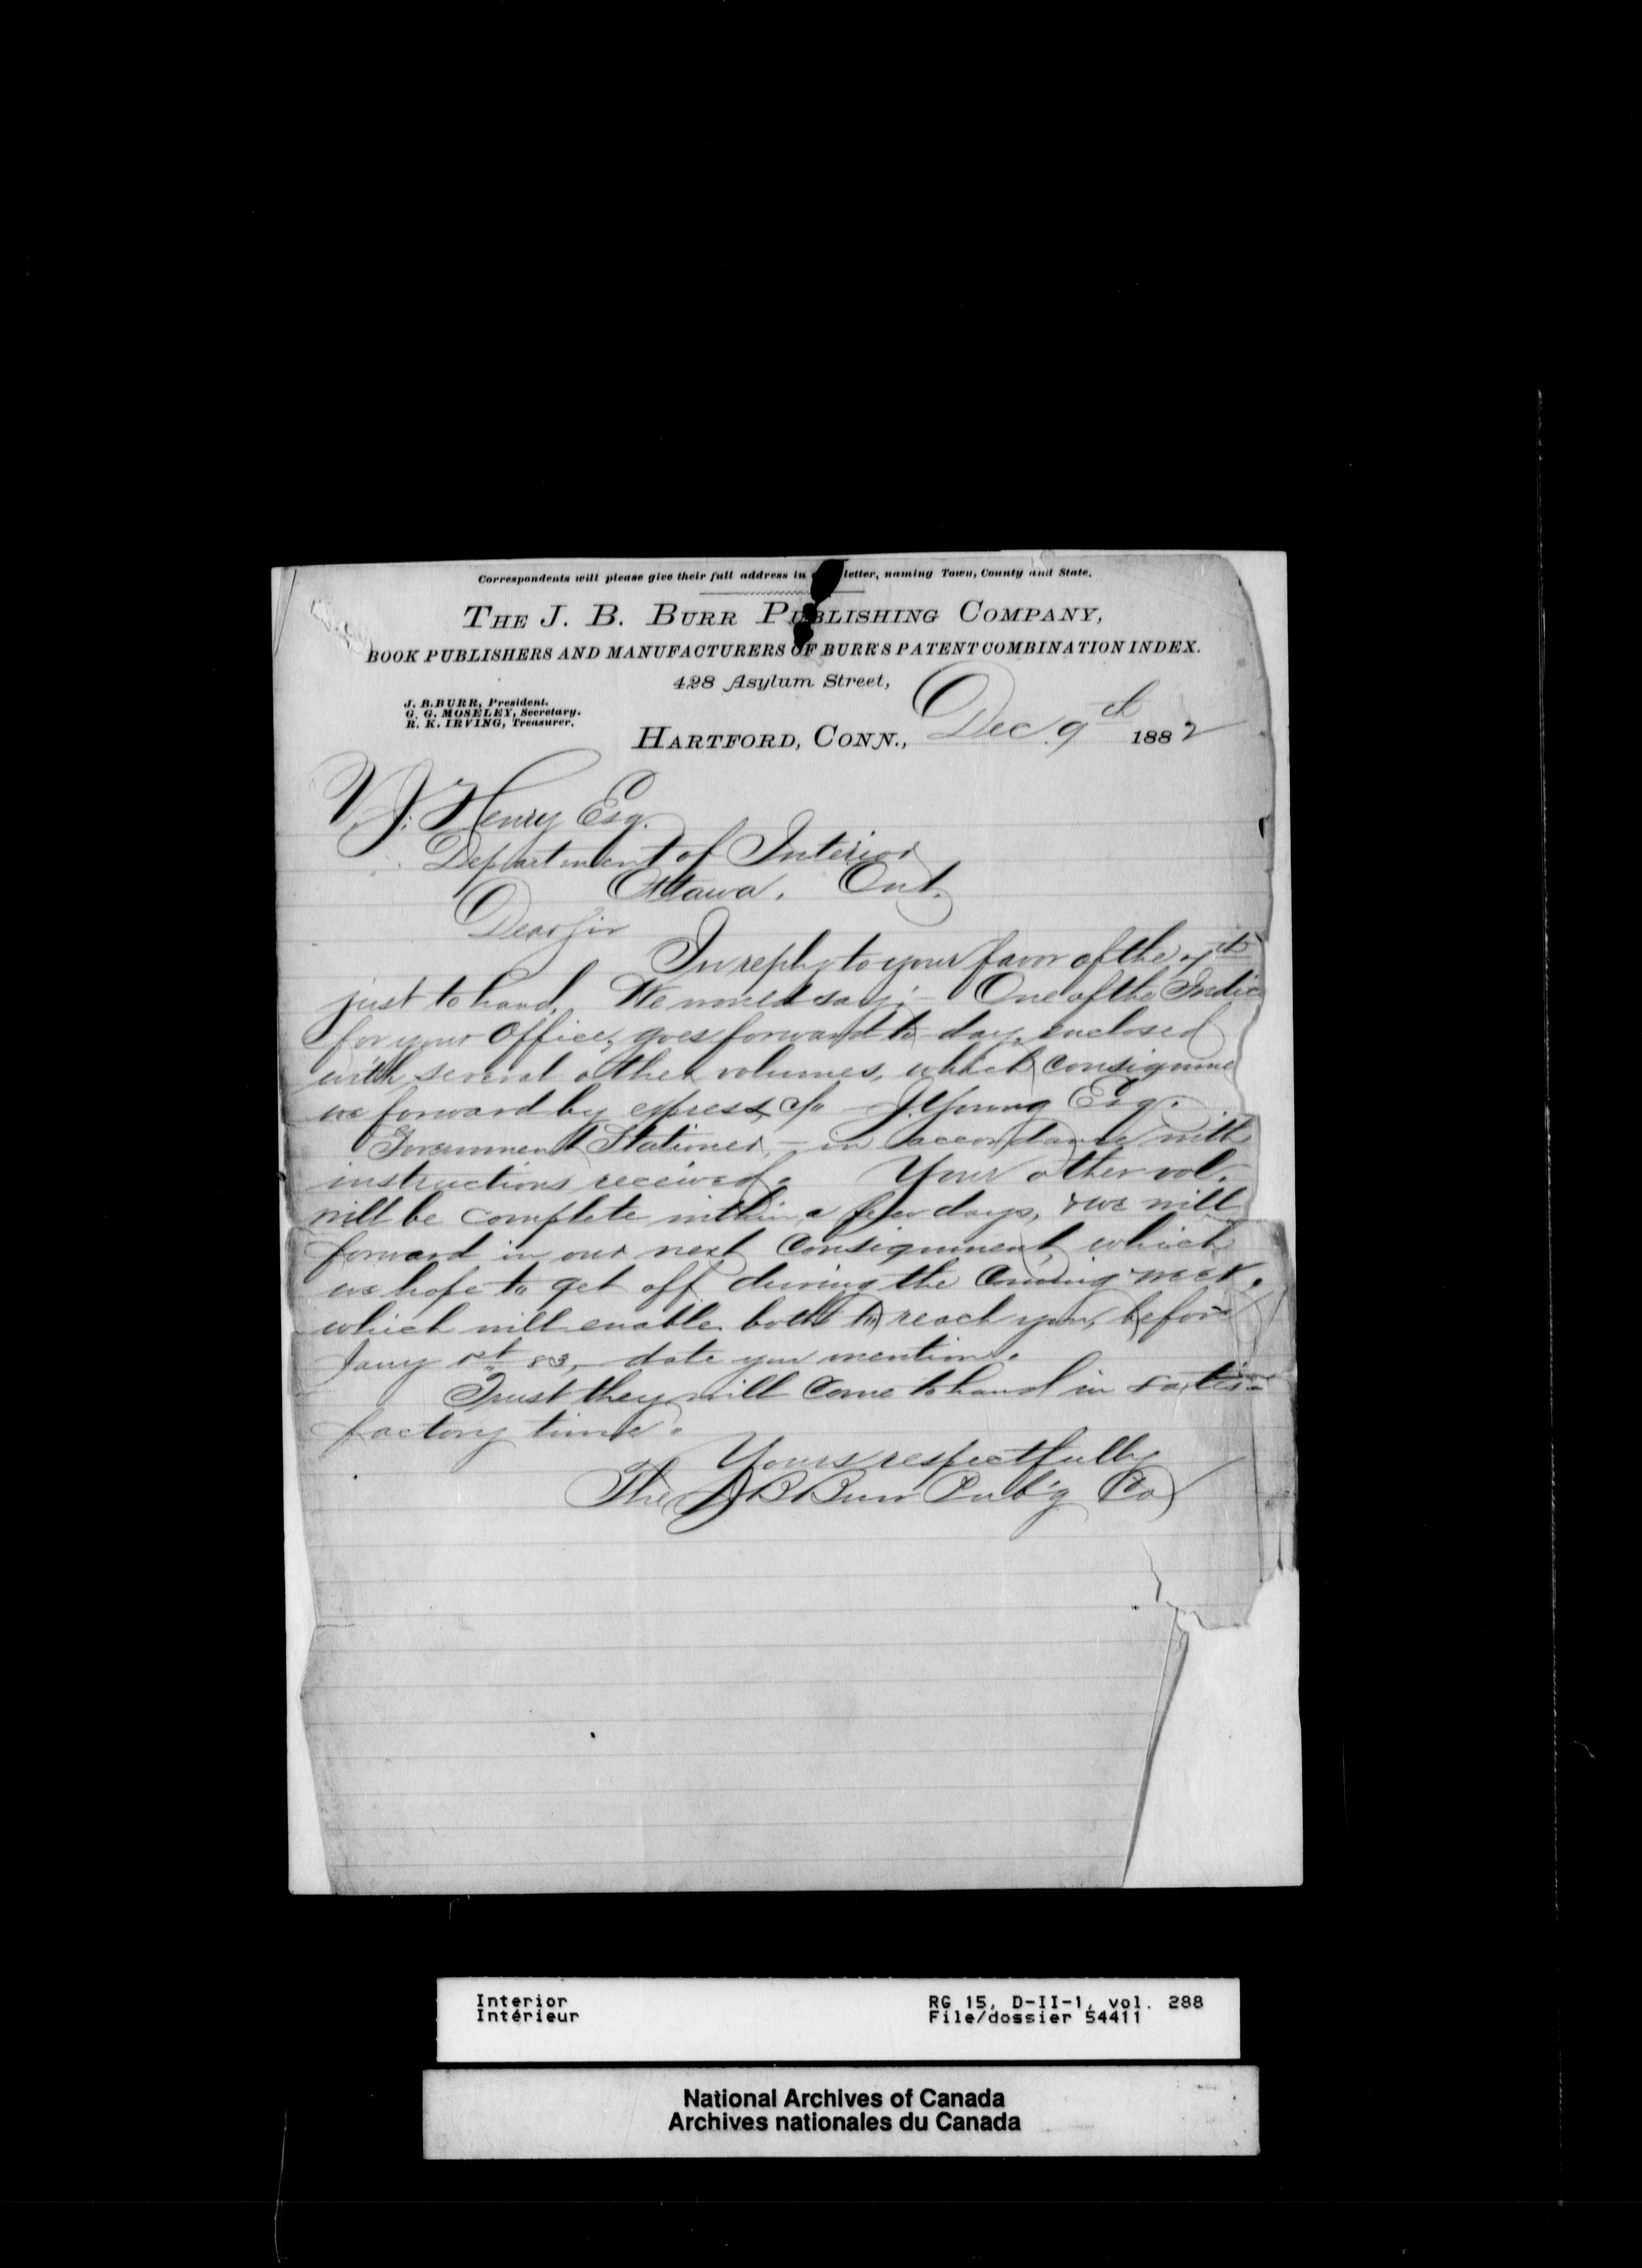 Correspondents will please give their full address in letter, naming Town, County and State.
THE J. B. BURR PUBLISHING COMPANY,
BOOK PUBLISHERS AND MANUFACTURERS OF BURR'S PATENT COMBINATION INDEX.
428 Asylum Street,
J. B. BURR, President.
G. G. MOSELEY, Secretary.
R. K. IRVING, Treasurer.
HARTFORD, CONN., Dec. 9th 1882
Henry Esq.
Department of Interior
Ottawa. Ont.
Dear Sir
In reply to your favor of the 7th
just to hand, We would say;- One of the Indic
for your office, goes forward to day, enclosed
with several other volumes, which consignme
we forward by express, c/o J. Young Esq.
Government Stationer, - in accordance with
instructions received. Your other vol.
will be complete within a few days, & we will
forward in our next consignment, which
we hope to get off during the coming week.
which will enable both to reach you, before
Jany 1st 83, date you mention.
Trust they will come to hand in satis=
factory time.
Yours respectfully
The J B Burr Pub'g Co
Interior
Intérieur
RG 15, D-II-1, vol. 288
File/dossier 54411
National Archives of Canada
Archives nationales du Canada